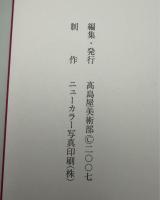 編集・発行　髙島屋美術部Ⓒ二〇〇七
制作　ニューカラー写真印刷(株)